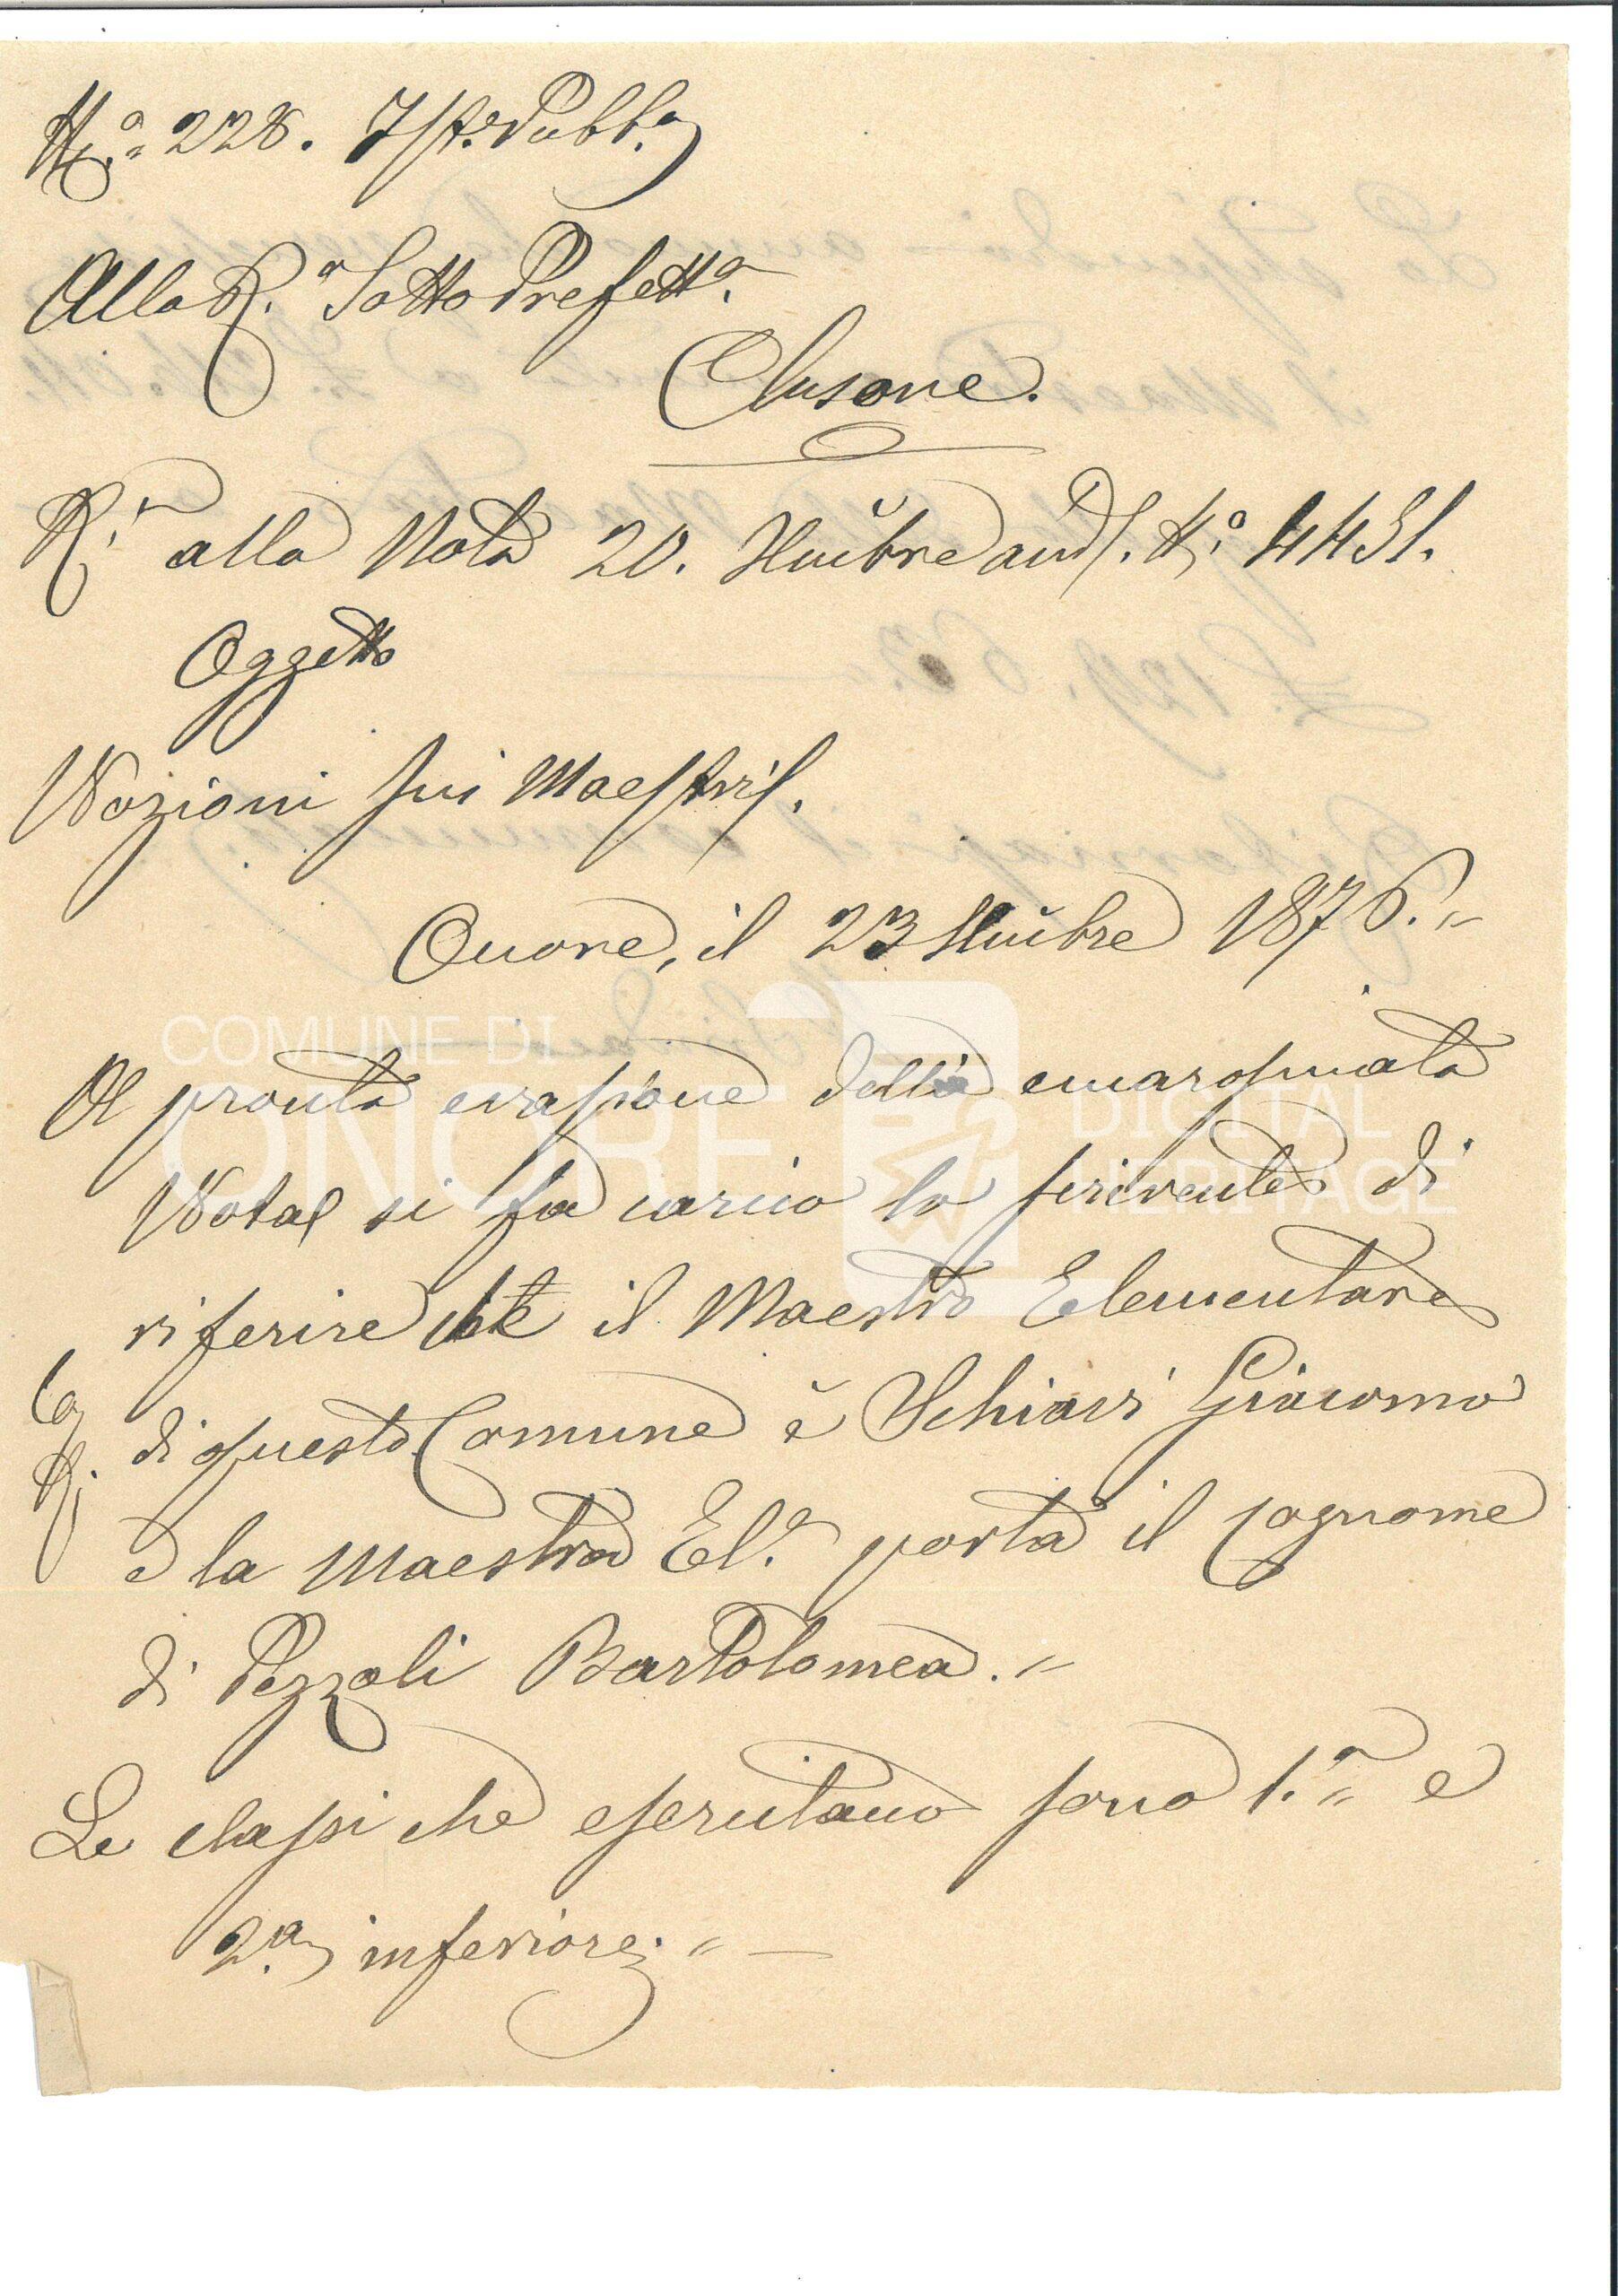 N.° 228. Ist.e Pubb.a
Alla R.a Sotto Prefett.a
Clusone.
R.a alla Nota 20. and. N.° 4451.
Oggetto
Nozioni sui Maestri.
Onore, il 23 1876.
A pronta evasione della emarginata
Nota si fa carico lo scrivente di
riferire che il Maestro Elementare
di questo Comune è Schiavi Giacomo
e la Maestra El.e porta il cognome
di Pezzoli Bartolomea.
Le classi che esercitano sono 1.a e
2.a inferiore.
COMUNE DI
ONORE
DIGITAL
HERITAGE